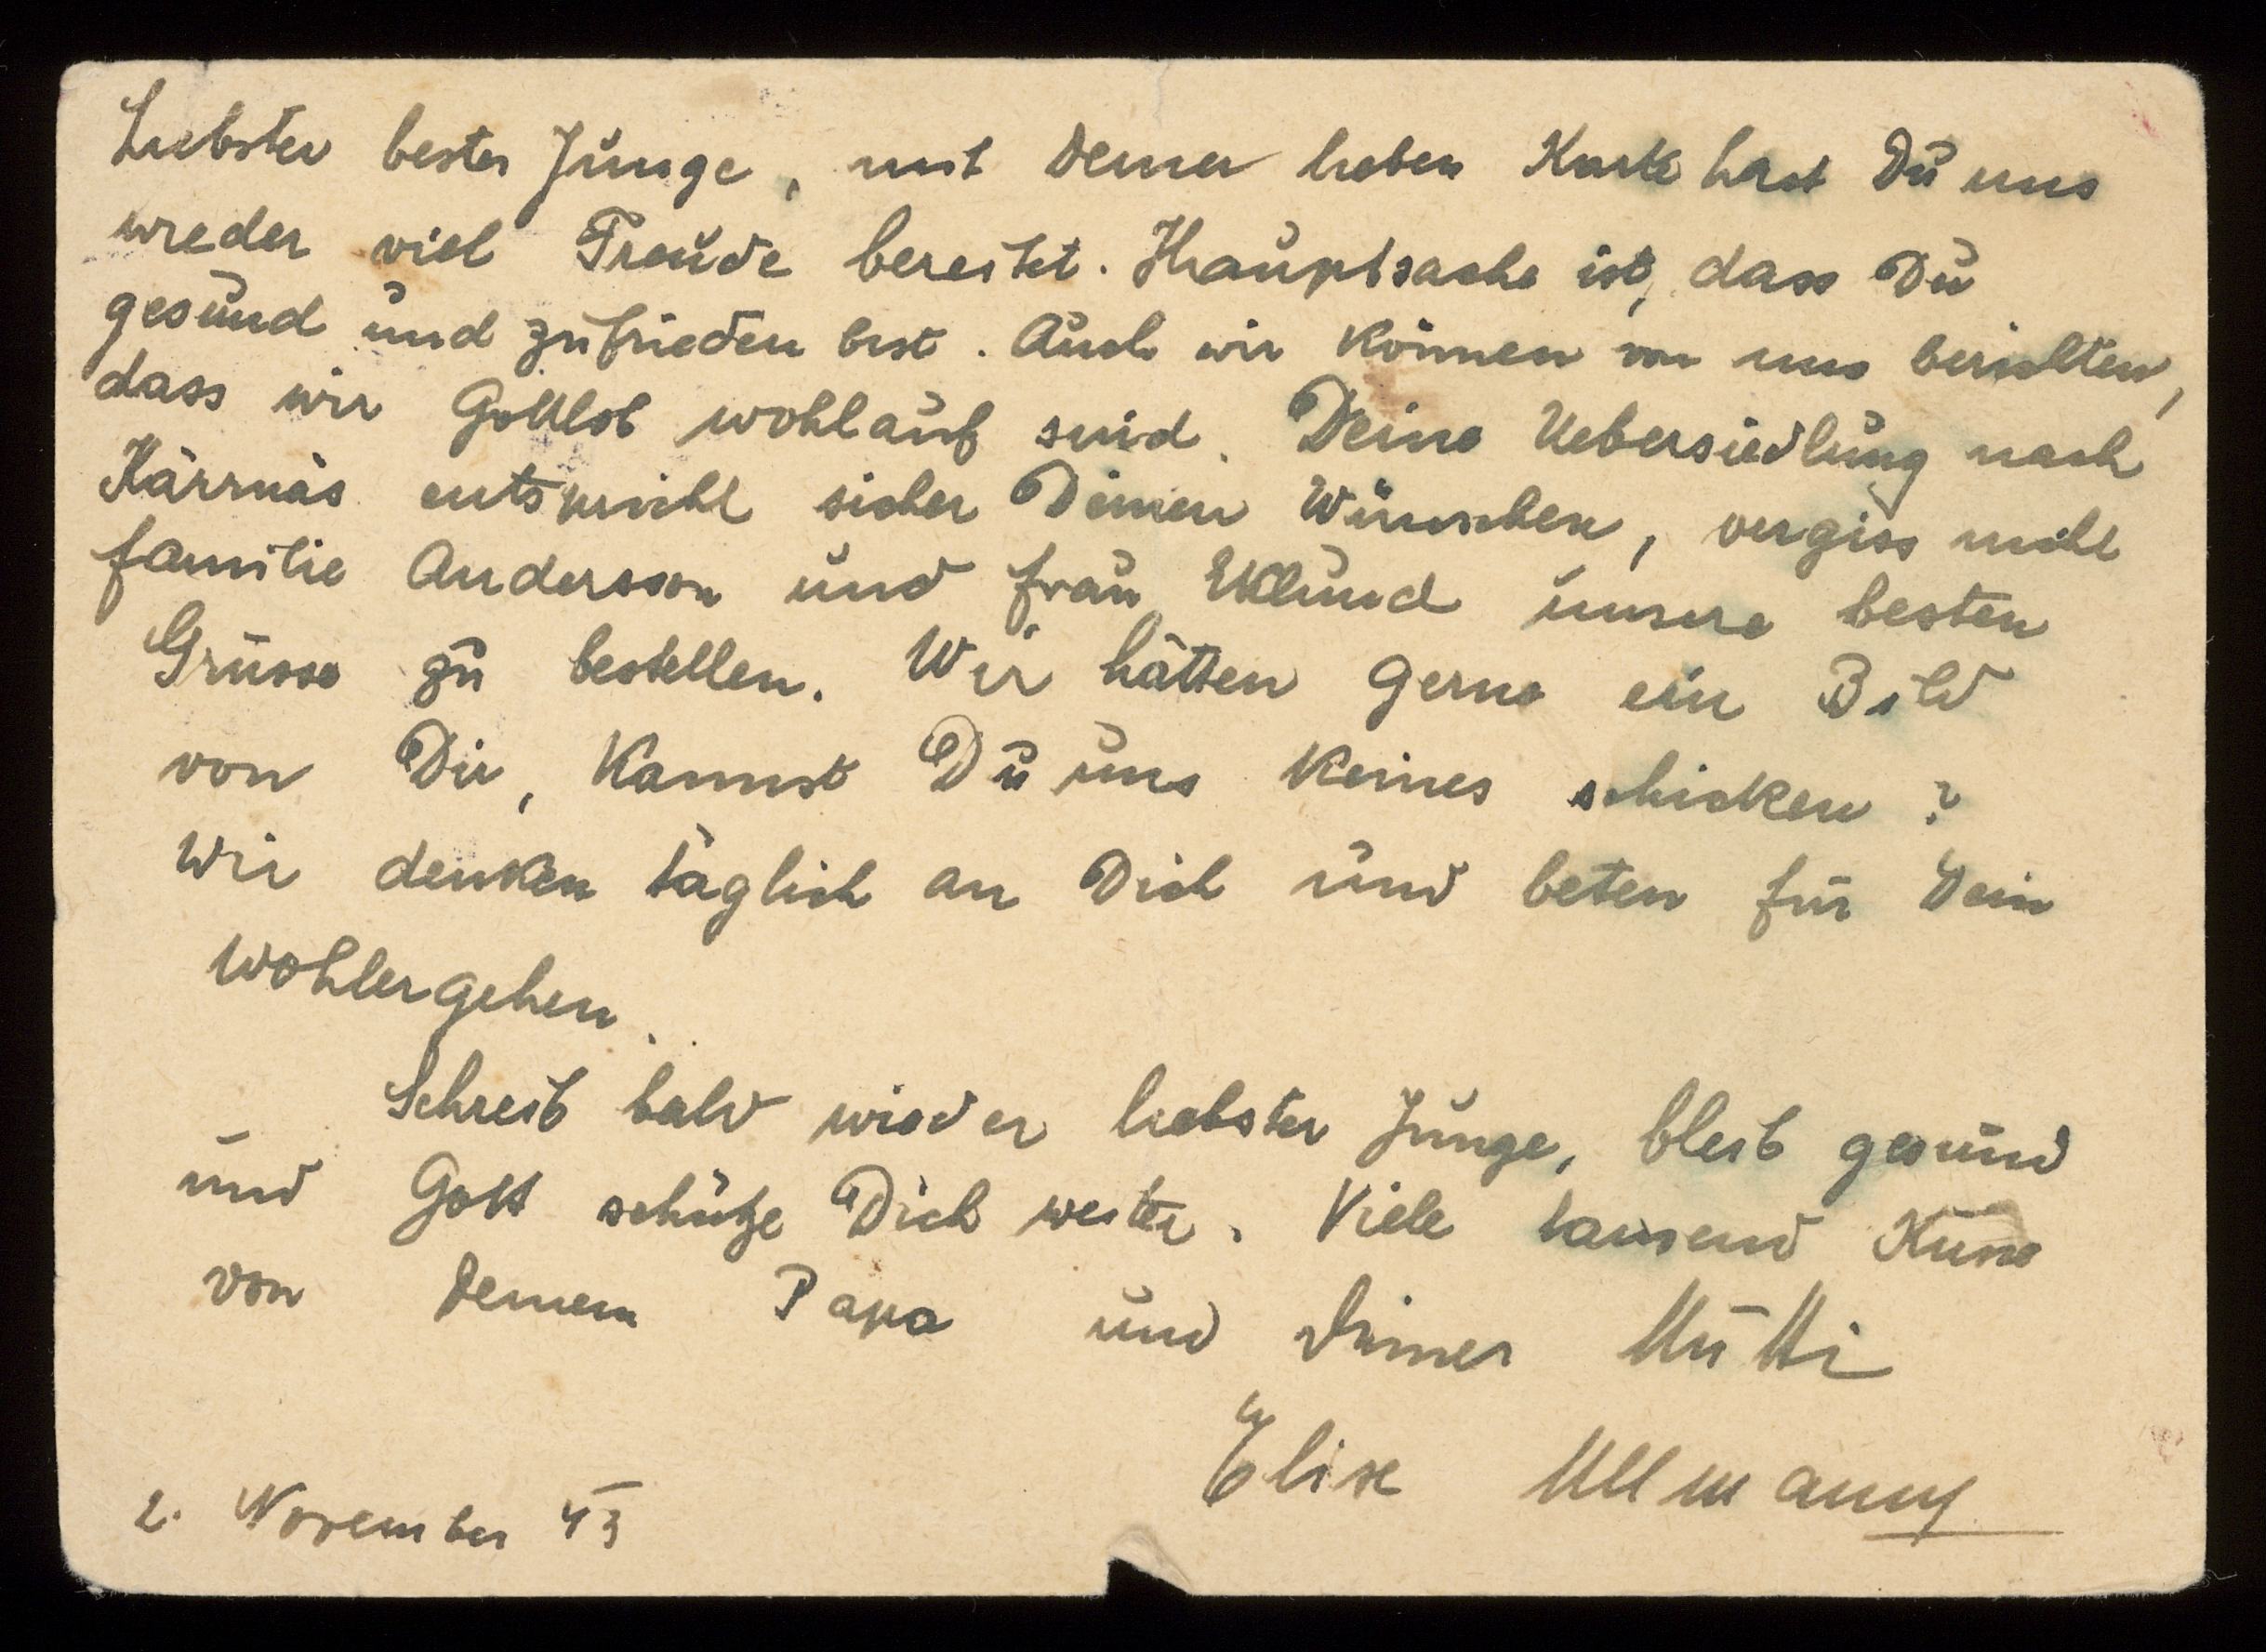 Liebster bester Junge, mit Deiner lieben Karte hast Du uns
wieder viel Freude bereitet. Hauptsache ist, dass Du
gesund und zufrieden bist. Auch wir können von uns berichten,
dass wir Gottlob wohlauf sind. Deine Uebersiedlung nach
Kärrnäs entspricht sicher Deinen Wünschen, vergiss nicht
Familie Andersson und Frau Eklund unsere besten
Grüsse zu bestellen. Wir hätten gerne ein Bild
von Dir, kannst Du uns keines schicken?
Wir denken täglich an Dich und beten für Dein
Wohlergehen.
Schreib bald wieder liebster Junge, bleib gesund
und Gott schütze Dich weiter. Viele tausend Küsse
von Deinem Papa und Deiner Mutti
Elise Ullmann
2. November 43